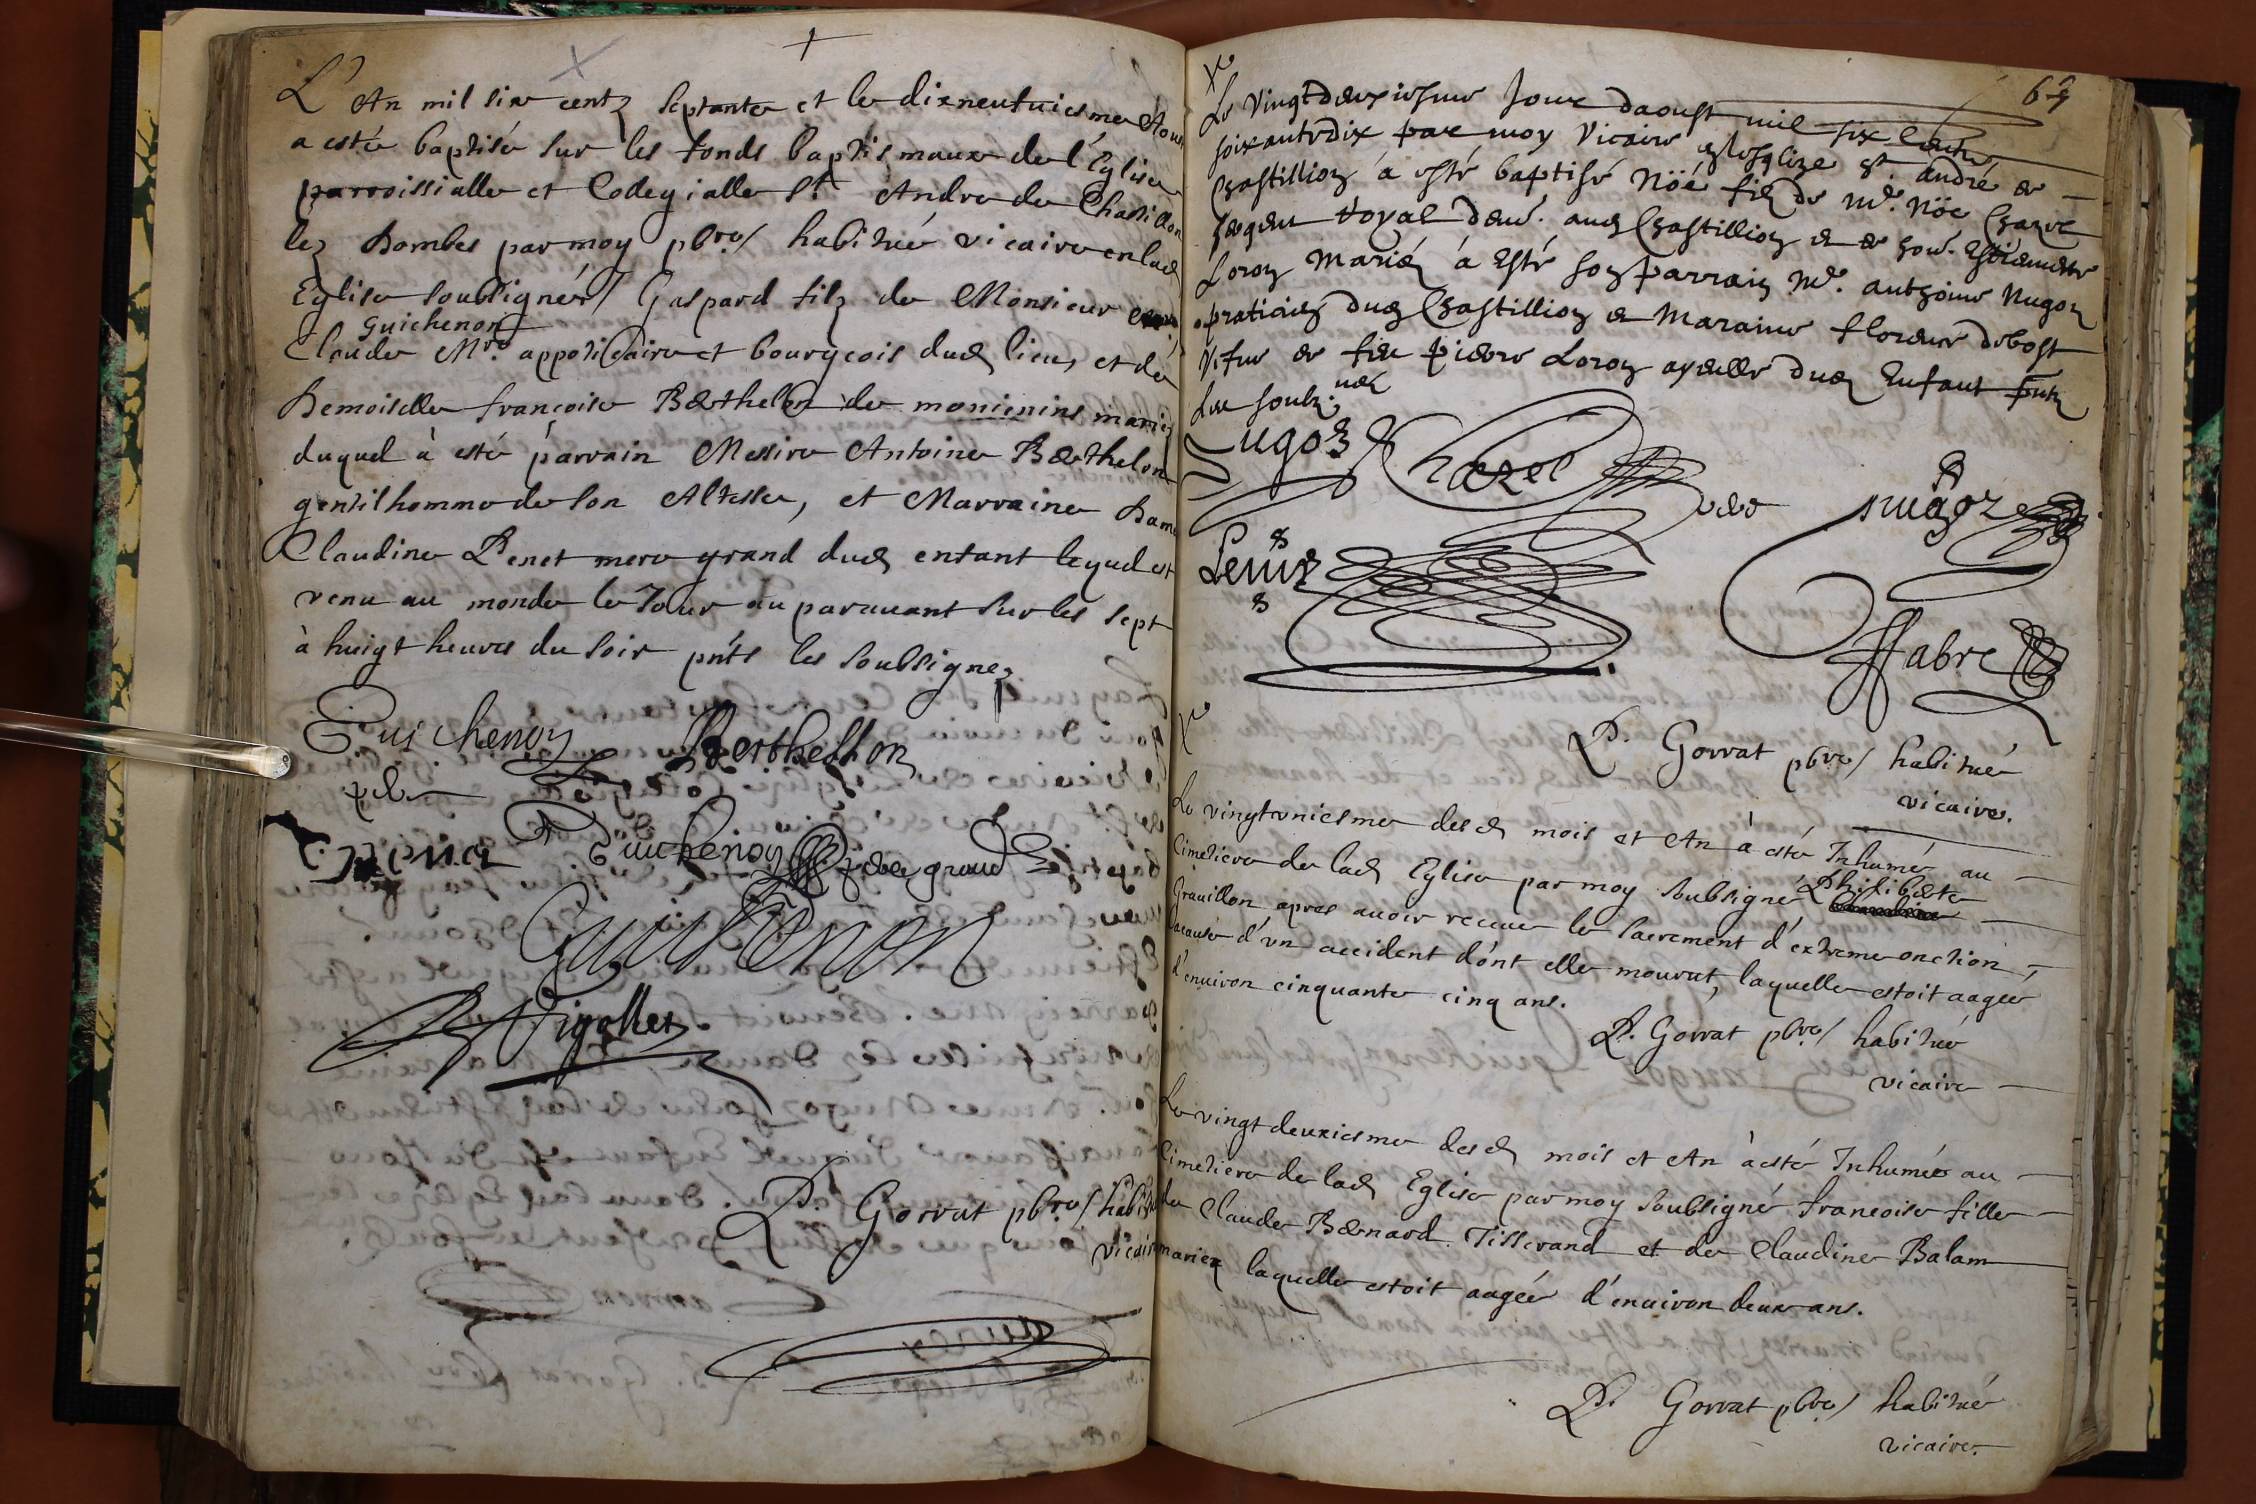 L'An mil six centz septante et le dixneufuiesme Aoust
a esté baptisé sur les fonds baptismaux de l'Église
parroissialle et Collegialle St. Andre de Chastillon
lez Dombes par moy pbre/ habitué vicaire en lad
Eglise soubsigner/ Gaspard filz de Monsieur
Guichenon
Claude Mre. appoticaire et bourgeois dud lieu, et de
Demoiselle francoise Berthelon de monienins mariez
duquel à esté parrain Messire Antoine Berthelon
gentilhomme de son Altesse, et Marraine Dame
Claudine Penet mere grand dud enfant lequel est
venu au monde le Jour au parauant sur les sept
à huigt heures du soir pnts les soubsignez
Guichenon Berthellon
pere
Guichenon grand
Guichenon
P. Gorrat pbre/ habitué
vicaire
67
Le Vingtdeuxiesme Jour daoust mil six Centz
soixantedix par moy Vicaire en lesglize st. andré de
Chastillion á esté baptisé Nöé filz de Me. Nöe Chazel
sergent Royal dem. aud Chastillion et de hon. Estiennette
Loron Mariéz á Esté son parrain Me. anthoine Nugon
praticien dud Chastillion et Maraine fleurie debost
Vefue de feu pierre Loron ayeulle dud Enfant
les soubz.nez
Nugoz Chazel
Nugoz
ffabre
P. Gorrat pbre/ habitué
vicaire.
Le vingtvniesme desd mois et An à esté Inhumé au
Cimetiere de lad Eglise par moy soubsigné Philiberte
Grauillon apres auoir receue le sacrement d'extreme onction,
acause d'vn accident dónt elle mourut, laquelle estoit aagée
d'enuiron cinquante cinq ans.
P. Gorrat pbre/ habitué
vicaire
Le vingt deuxiesme desd mois et An à esté Inhumée au
Cimetiere de lad Eglise par moy soubsigné francoise fille
de Claude Bernard Tisserand et de Claudine Balam
mariez laquelle estoit aagée d'enuiron deux ans.
P. Gorrat pbre/ habitué
vicaire.